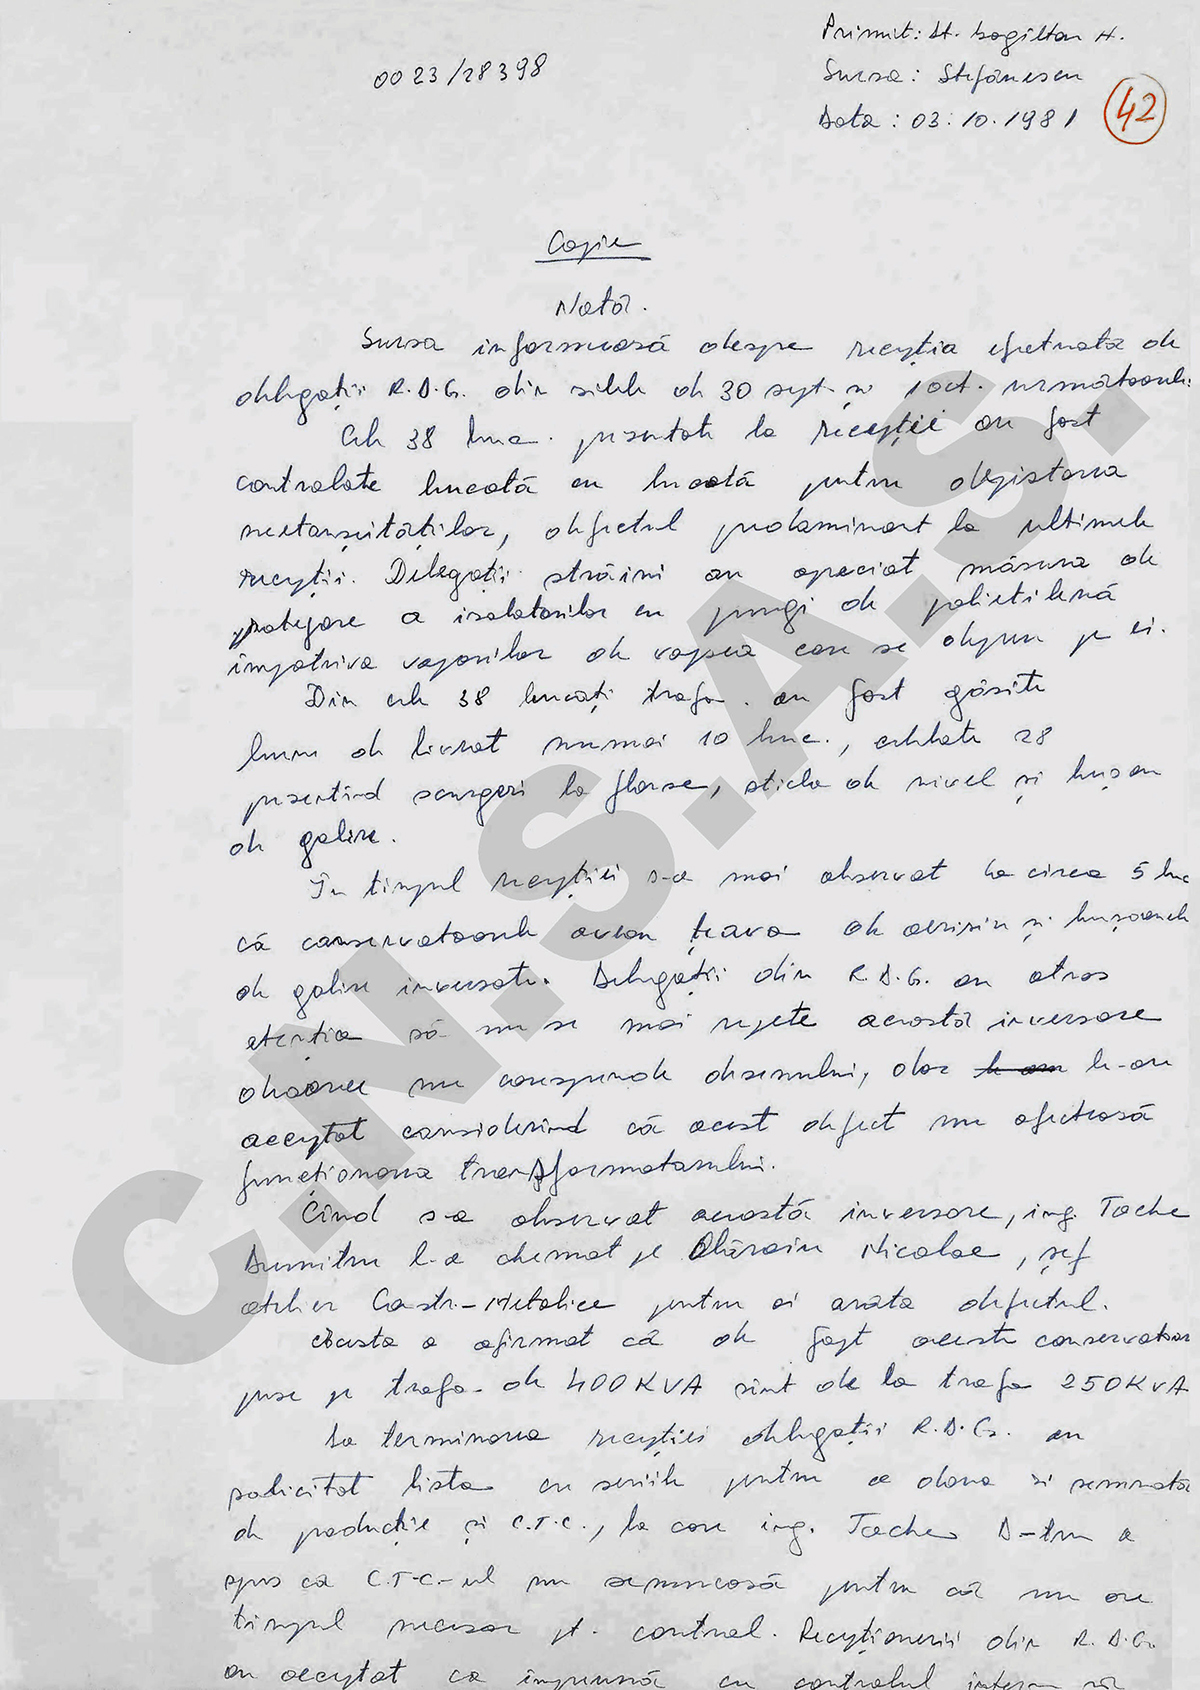 0023/28398
Primit: Lt. Bogiltan H.
Sursa: Stefănescu
Data: 03.10.1981
42
Copie
Notă.
Sursa informează despre recepția efectuată de
delegații R.D.G. din zilele de 30 sept. și 1 oct. următoarele:
Cele 38 buc. prezentate la recepții au fost
controlate bucată cu bucată pentru depistarea
neetanșeităților, defectul predominant la ultimele
recepții. Delegații străini au apreciat măsura de
protejare a izolatorilor cu pungi de polietilenă
împotriva vaporilor de vopsea care se depun pe ei.
Din cele 38 bucăți trafo. au fost găsite
bune de livrat numai 10 buc., celelalte 28
prezentînd scurgeri la flanșe, sticla de nivel și bușon
de golire.
În timpul recepției s-a mai observat la circa 5 buc
că conservatoarele aveau țeava de aerisire și bușoanele
de golire inversate. Delegații din R.D.G. au atras
atenția să nu se mai repete această inversare
deoarece nu corespunde desenului, dar le-au
acceptat considerînd că acest defect nu afectează
funcționarea transformatorului.
Cînd s-a observat această inversare, ing. Tache
Dumitru l-a chemat pe Olăroiu Nicolae, șef
atelier Constr-Metalice pentru a-i arăta defectul.
Acesta a afirmat că de fapt aceste conservatoare
puse pe trafo-de 400KVA sînt de la trafo 250KVA
La terminarea recepției delegații R.D.G. au
solicitat lista cu seriile pentru a o avea și semnată
de producție și C.T.C., la care ing. Tache D-tru a
spus că C.T.C-ul nu semnează pentru că nu are
timpul necesar pt. control. Recepționerii din R.D.G.
au acceptat ca împreună cu controlul intern să
C.N.S.A.S.